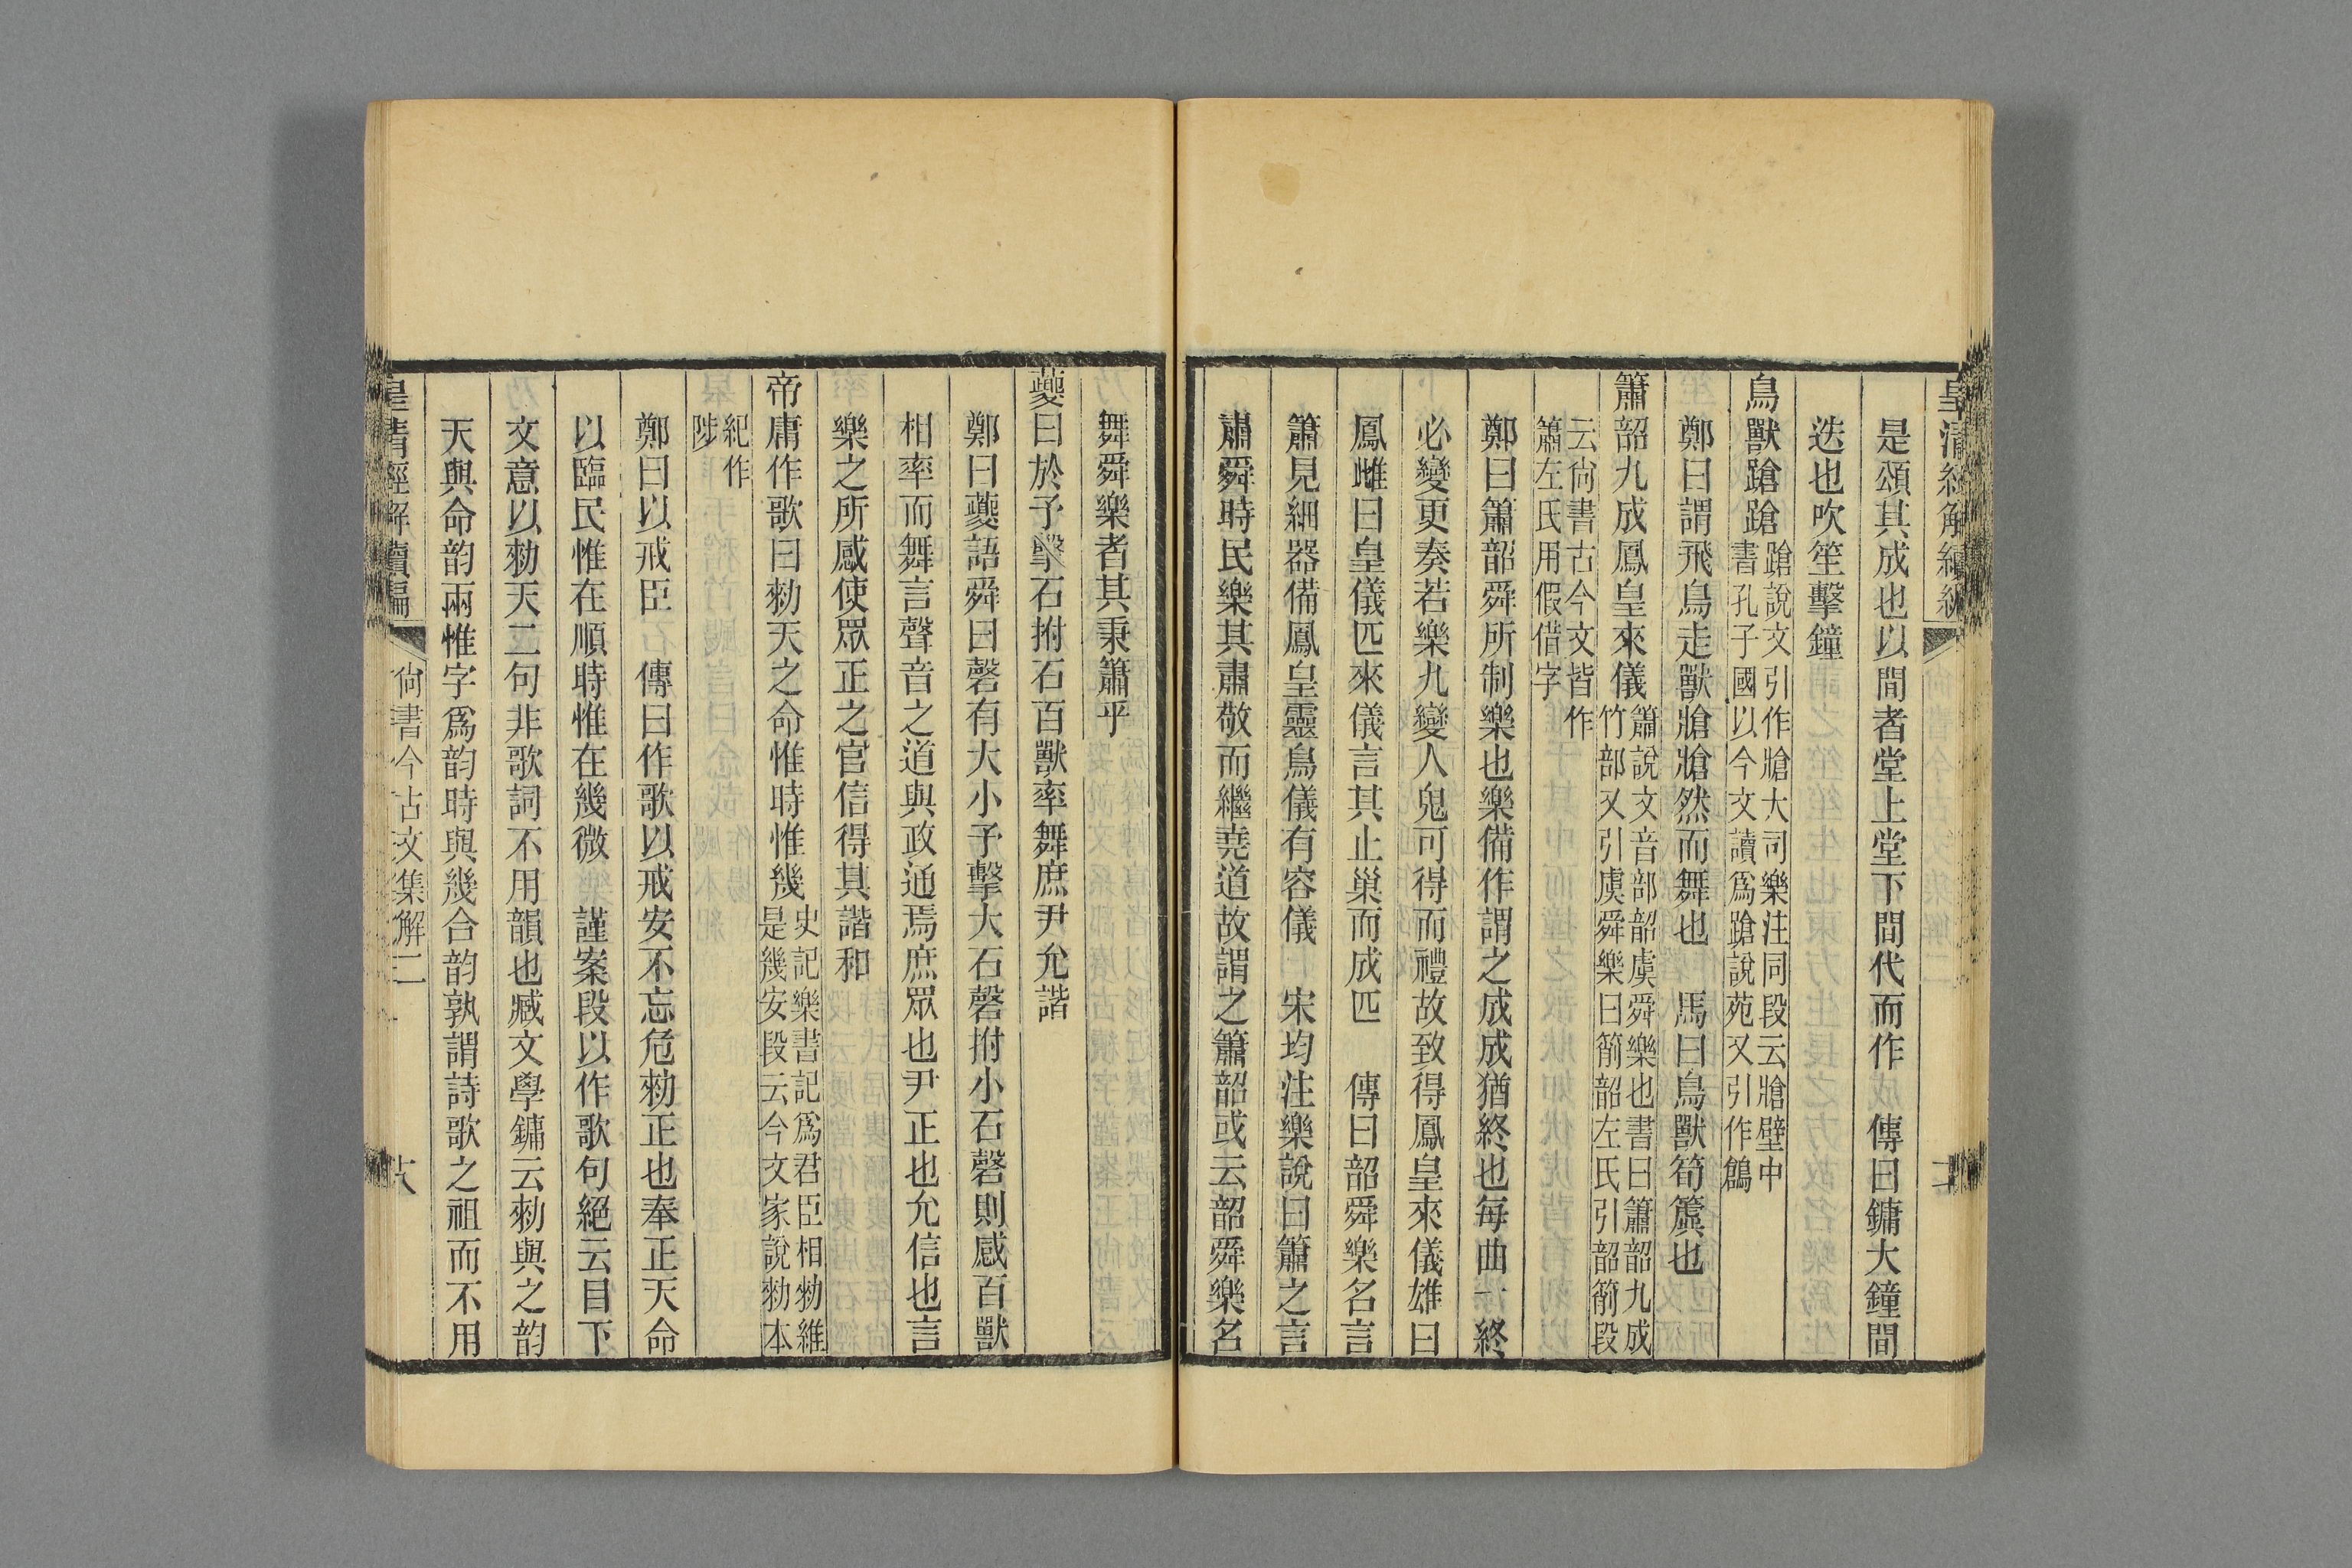 皇清經解續編
是頌其成也以間者堂上堂下間代而作　傳曰鏞大鐘間
迭也吹笙擊鐘
鳥獸蹌蹌蹌說文引作牄大司樂注同段云牄壁中
書孔子國以今文讀爲蹌說苑又引作鶬
鄭曰謂飛鳥走獸牄牄然而舞也　馬曰鳥獸筍簴也
簫韶九成鳳皇來儀簫說文音部韶虞舜樂也書曰簫韶九成
竹部又引虞舜樂曰箾韶左氏引韶箾段
云尙書古今文皆作
簫左氏用假借字
鄭曰簫韶舜所制樂也樂備作謂之成成猶終也每曲一終
必變更奏若樂九變人鬼可得而禮故致得鳳皇來儀雄曰
鳳雌曰皇儀匹來儀言其止巢而成匹　傳曰韶舜樂名言
簫見細器備鳳皇靈鳥儀有容儀　宋均注樂說曰簫之言
肅舜時民樂其肅敬而繼堯道故謂之簫韶或云韶舜樂名
舞舜樂者其秉簫乎
夔曰於予擊石拊石百獸率舞庶尹允諧
鄭曰夔語舜曰磬有大小予擊大石磬拊小石磬則感百獸
相率而舞言聲音之道與政通焉庶眾也尹正也允信也言
樂之所感使眾正之官信得其諧和
帝庸作歌曰勑天之命惟時惟幾史記樂書記爲君臣相勑維
是幾安段云今文家說勑本
紀作
陟
鄭曰以戒臣　傳曰作歌以戒安不忘危勑正也奉正天命
以臨民惟在順時惟在幾微　謹案段以作歌句絕云目下
文意以勑天二句非歌詞不用韻也臧文學鏞云勑與之韵
天與命韵兩惟字爲韵時與幾合韵孰謂詩歌之祖而不用
皇清經解續編　尙書今古文集解二　六